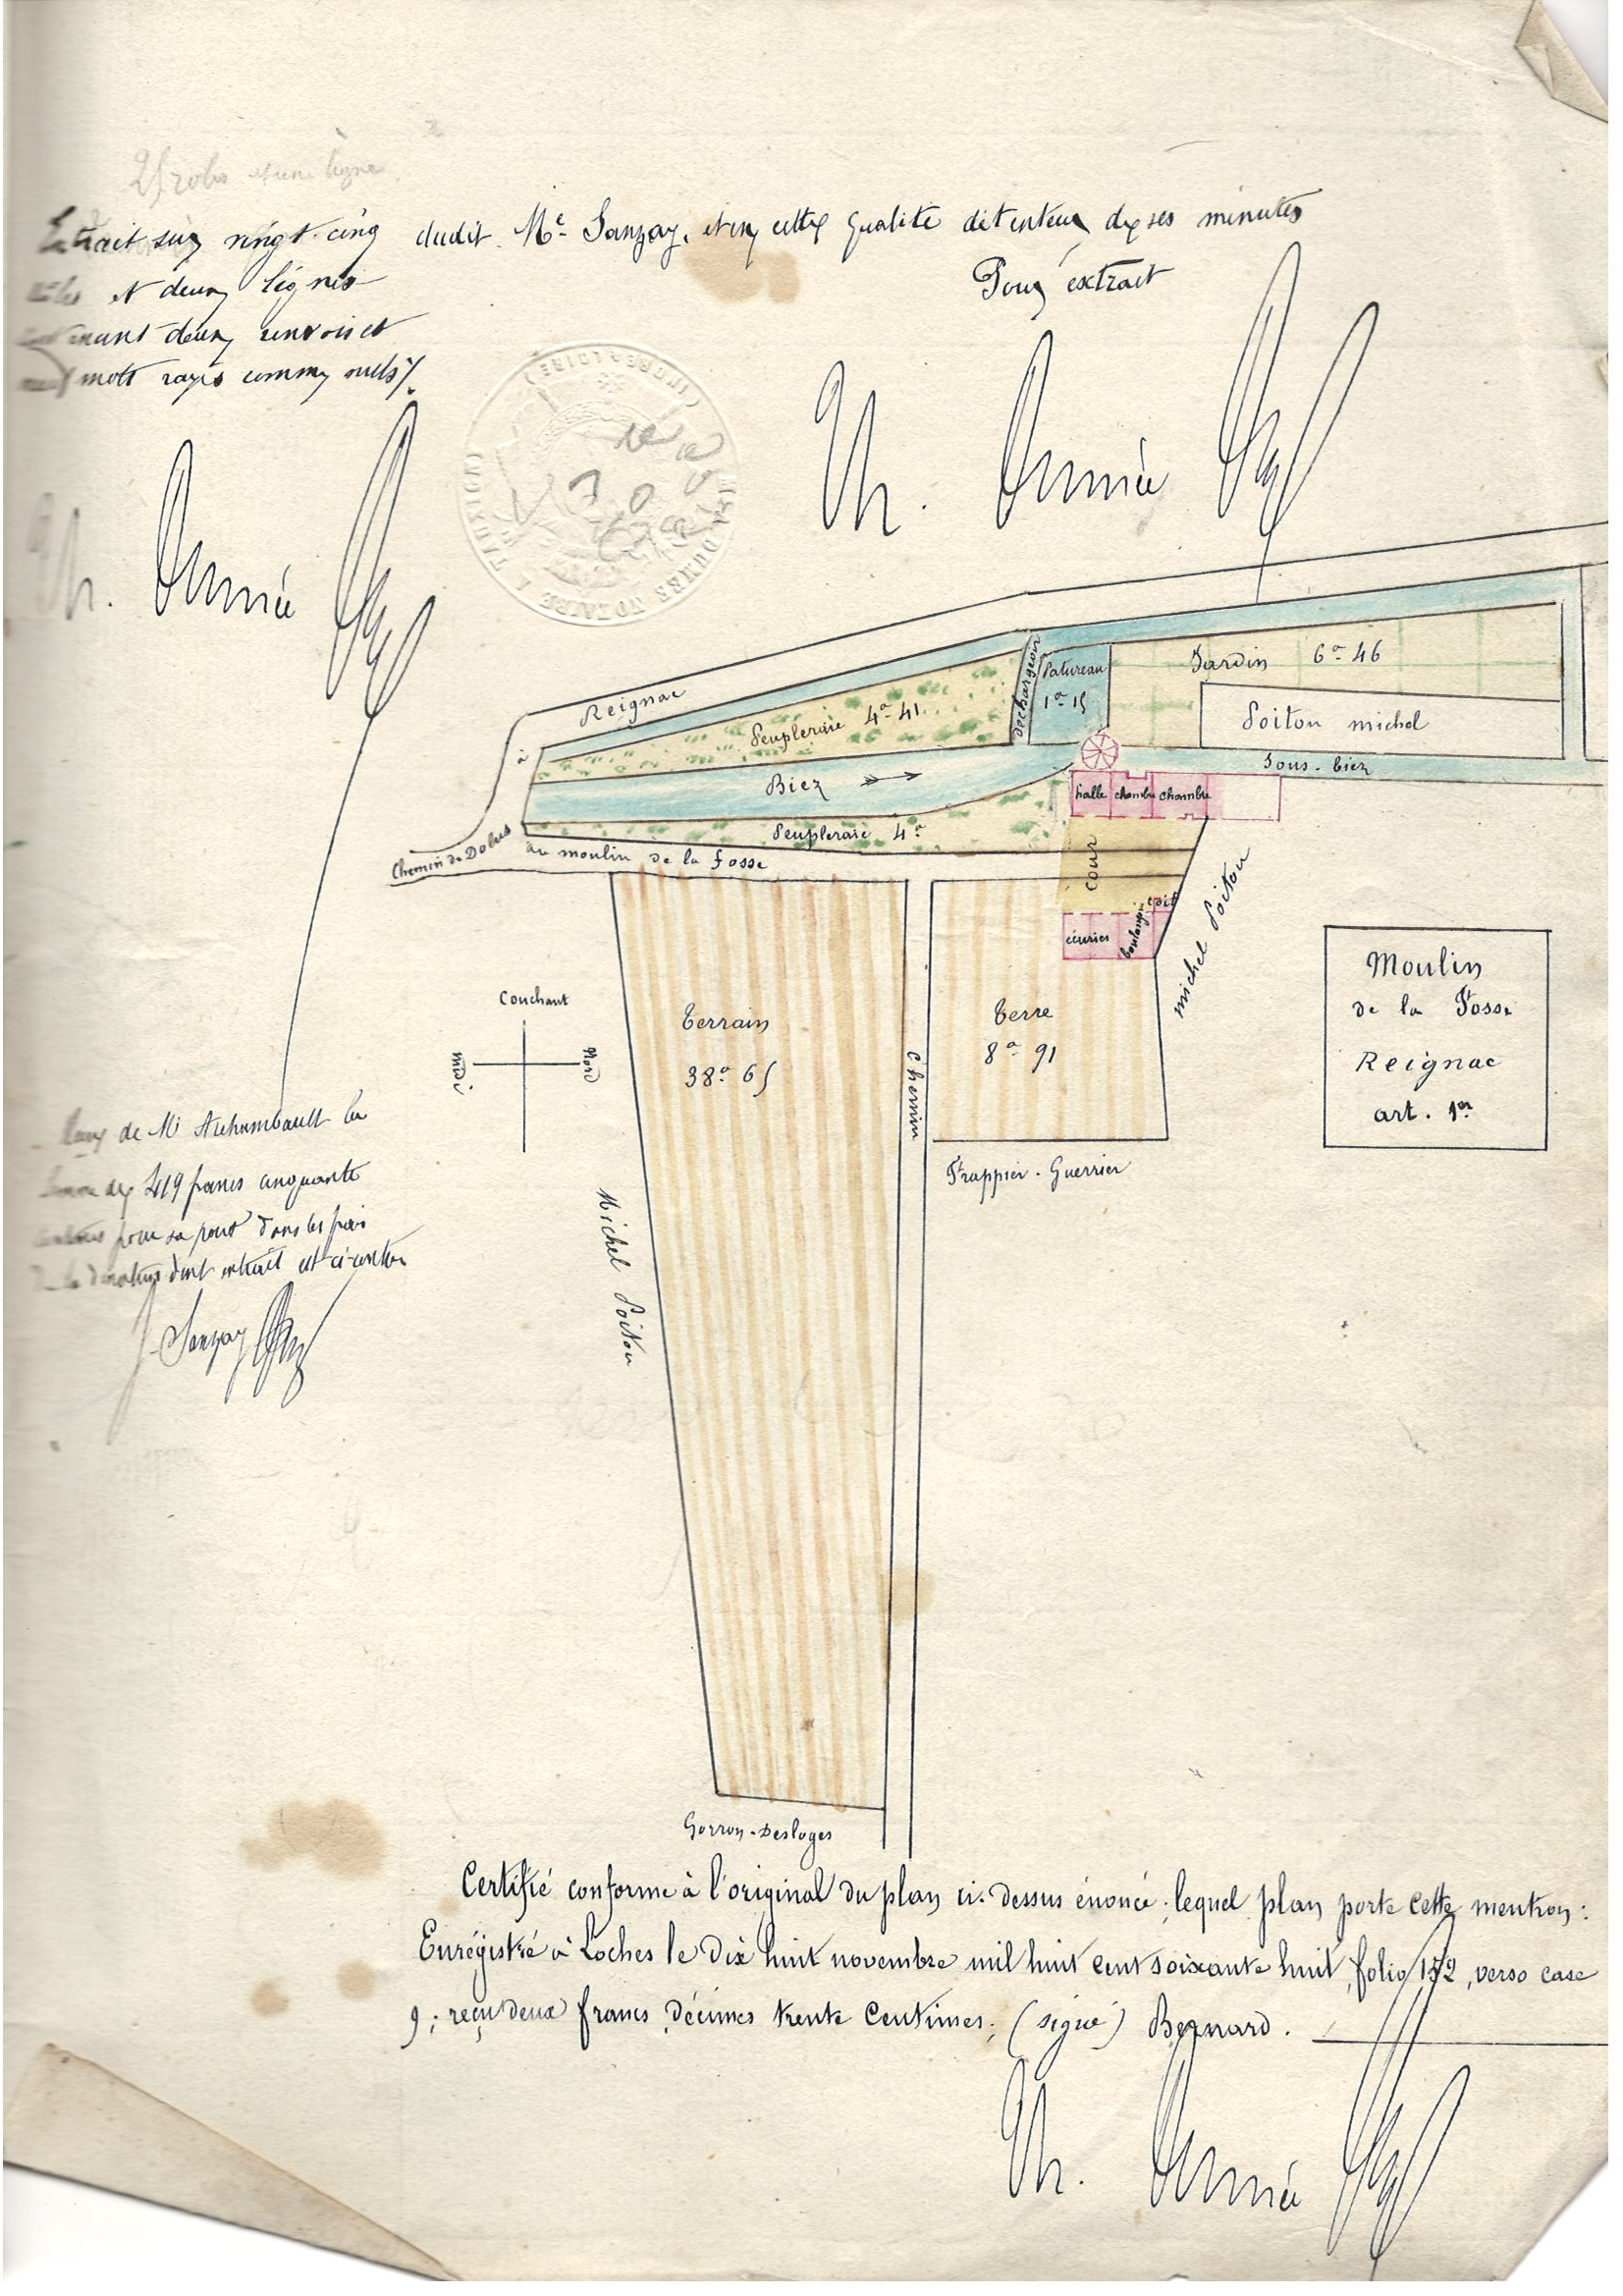 Extrait sur vingt-cinq
et deux lignes
deux renvois et
mots rayés comme nuls
dudit Me Sanzay, et en cette qualité détenteur de ses minutes
Pour extrait
Th. Dumée
Th. Dumée
(INDRE & LOIRE)
DUMÉE NOTAIRE À TAUXIGNY
à Reignac
Peupleraie 4a 41
Déchargeoir
Patureau
1a 15
Jardin 6a 46
Poiton michel
Biez
Sous-biez
halle chambre chambre
Peupleraie 4a
Chemin de Dolus au moulin de la fosse
cour
toit
écuries
boulangerie
michel Poiton
Couchant
midi
Nord
Terrain
38a 65
Chemin
Terre
8a 91
Moulin
de la Fosse
Reignac
art. 1er
Frappier-Guerrier
Michel Poiton
de Mr Archambault la
de 419 francs cinquante
pour sa part dans les frais
dont extrait est ci-contre
Sanzay
Gorron-Desloges
Certifié conforme à l'original du plan ci-dessus énoncé; lequel plan porte cette mention:
Enrégistré à Loches le dix huit novembre mil huit cent soixante huit, folio 172, verso case
9; reçu deux francs, décimes trente centimes; (signé) Bernard.
Th. Dumée